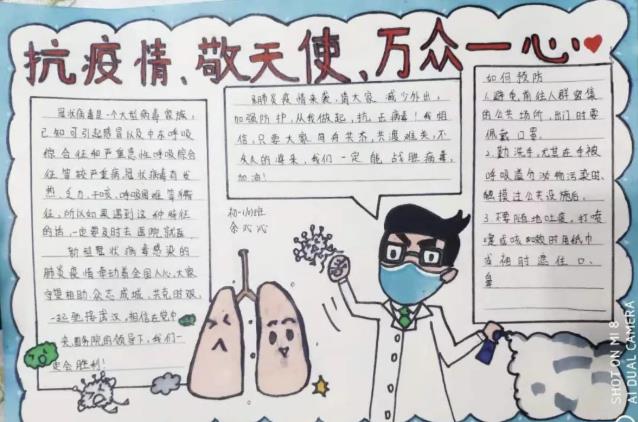 抗疫情、敬天使、万众一心
冠状病毒是一个大型病毒家族,
已知可引起感冒以及中东呼吸
综合征和严重急性呼吸综合
征等较严重病,冠状病毒有发
热、乏力、干咳、呼吸困难等
征,所以如果遇到这种特征
的话,一定要及时去医院就医
新型冠状病毒感染的
肺炎疫情牵动着全国人心,大家
守望相助,众志成城,共克时艰,
一起驰援武汉,相信在党中
央国务院的领导下,我们一
定会胜利!
肺炎疫情来袭,请大家减少外出,
加强防护,从我做起,抗击病毒!我相
信,只要大家同舟共济,共渡难关,不
久的将来,我们一定能战胜病毒,
加油!
初一
余沁沁
如何预防
1.避免前往人群密集
的公共场所,出门时要
佩戴口罩
2.勤洗手,尤其在手被
呼吸道分泌物污染时、
触摸过公共设施后。
3.不随地吐痰,打喷
嚏或咳嗽时用纸巾
或袖时遮住口、
鼻
SHOT ON MI 8
AI DUAL CAMERA